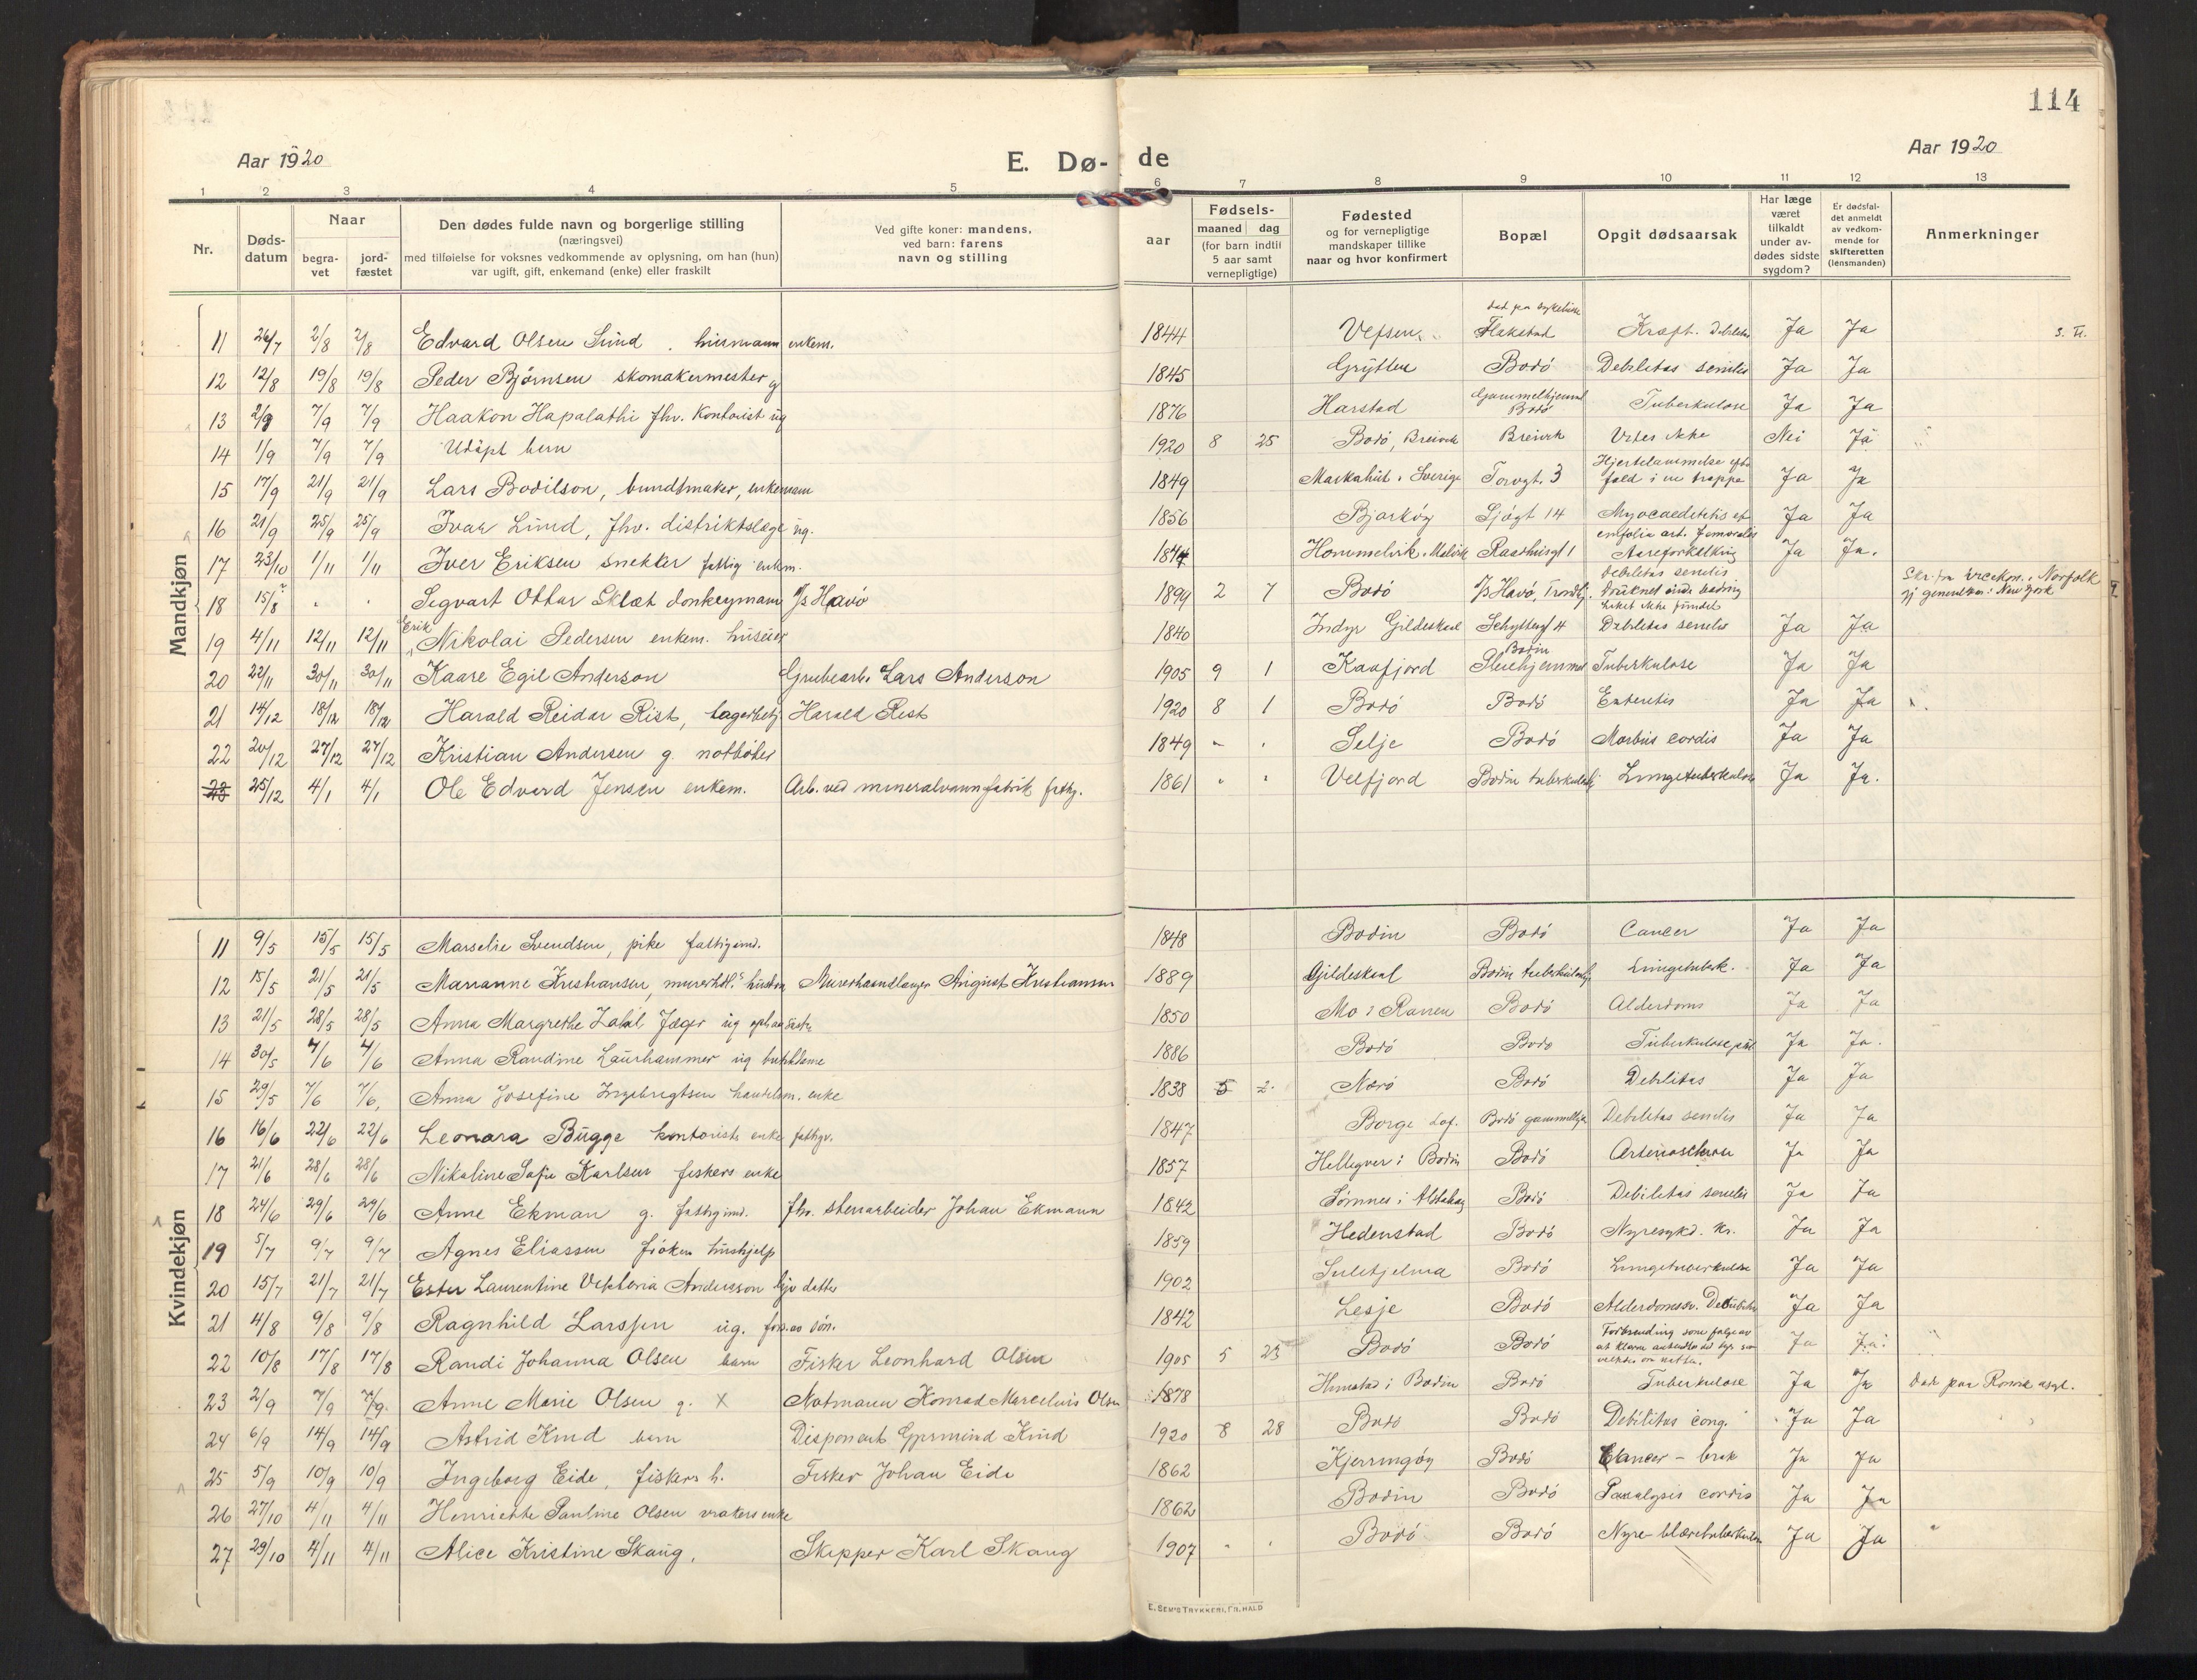 114
Aar 1920 E. Dø- de Aar 1920
1 2 3 4 5 6 7 8 9 10 11 12 13
Nr. Døds-datum Naar begra-vet jord-fæstet Den dødes fulde navn og borgerlige stilling (næringsvei) med tilføielse for voksnes vedkommende av oplysning, om han (hun) var ugift, gift, enkemand (enke) eller fraskilt Ved gifte koner: mandens, ved barn: farens navn og stilling aar Fødsels- maaned dag (for barn indtil 5 aar samt vernepligtige) Fødested og for vernepligtige mandskaper tillike naar og hvor konfirmert Bopæl Opgit dødsaarsak Har læge været tilkaldt under av-dødes sidste sygdom? Er dødsfal-det anmeldt av vedkom-mende for skifteretten (lensmanden) Anmerkninger
Mandkjøn
11 26/7 2/8 2/8 Edvard Olsen Lund husmann enkem. 1844 Vefsen Flakstad Kræft. Ja Ja
12 12/8 19/8 19/8 Peder Bjørnsen skomakermester g 1845 Grytten Bodö Debilitas senilis Ja Ja
13 2/9 7/9 7/9 Haakon Hapalathi fhv. Kontorist ug 1876 Harstad Gammelhjemmet Bodö Tuberkulose Ja Ja
14 1/9 7/9 7/9 Udöpt barn 1920 8 25 Bodö, Breivik Breivik Vites ikke Nei Ja
15 17/9 21/9 21/9 Lars Bodilson, bundtmaker, enkemann 1849 Sverige Torvgt. 3 Hjertelammelse efter fald i en trappe Ja Ja
16 21/9 25/9 25/9 Ivar Lund, fhv. distriktslæge ug. 1856 Bjarköy Sjögt 14 Ja Ja
17 23/10 1/11 1/11 Iver Eriksen snekker fattig enkem. 1844 Hommelvik, Malvik Raadhusgt 1 Aareforkalkning Debilitas senilis Ja Ja.
18 15/8 " " Sigvart Ottar donkeymann D/s Havö 1899 2 7 Bodö D/s Havö, Trondhj. Druknet under badning Liket ikke fundet Skr. fra vicekons. i Norfolk gj generalkon. i New York
19 4/11 12/11 12/11 Erik Nikolai Pedersen enkem. huseier 1840 Indyr Gildeskaal Schyttesgt 4 Debilitas senilis Ja Ja
20 22/11 30/11 30/11 Kaare Egil Anderson Grubearb. Lars Anderson 1905 9 1 Kaafjord Bodin Pleiehjemmet Tuberkulose Ja Ja
21 14/12 18/12 18/12 Harald Reidar Rist, lagerbetj Harald Rist 1920 8 1 Bodö Bodö Enteritis Ja Ja
22 20/12 27/12 27/12 Kristian Andersen g. notböter 1849 " " Selje Bodö Morbus cordis Ja Ja
23 25/12 4/1 4/1 Ole Edvard Jensen enkem. Arb. ved mineralvannfabrik fattig. 1861 " " Velfjord Bodin tuberkulosehj Lungetuberkulose Ja Ja.
Kvindekjøn
11 9/5 15/5 15/5 Marselie Svendsen, pike fattigund. 1848 Bodin Bodö Cancer Ja Ja
12 15/5 21/5 21/5 Marianne Kristiansen, murerhdl.s hustru Murerhaandlanger August Kristiansen 1889 Gildeskaal Bodin tuberkulosehje Lungetuberk. Ja Ja
13 21/5 28/5 28/5 Anna Margrethe Zahl Jæger ug 1850 Mo i Ranen Bodö Alderdoms Ja Ja
14 30/5 4/6 4/6 Anna Randine Laurhammer ug butikdame 1886 Bodö Bodö Tuberkulose pul Ja Ja.
15 29/5 7/6 7/6, Anna Josefine Ingebrigtsen handelsm. enke 1838 5 2 Nærö Bodö Debilitas Ja Ja
16 16/6 22/6 22/6 Leonora Bugge kontorists enke fattigv. 1847 Borge Lof. Bodö gammelhjem Debilitas senilis Ja Ja
17 21/6 28/6 28/6 Nikoline Sofie Karlsen fiskers enke 1857 Helligvær i Bodin Bodö Ja Ja
18 24/6 29/6 29/6 Anne Ekman g. fattigund. fhv. stenarbeider Johan Ekmann 1842 Sömnes i Alstahaug Bodö Debilitas senilis Ja Ja
19 5/7 9/7 9/7 Agnes Eliassen fröken hushjelp 1859 Hedenstad Bodö Nyresykd. kr. Ja Ja
20 15/7 21/7 21/7 Ester Laurentine Viktoria Andersson hjv datter 1902 Sulitjelma Bodö Lungetuberkulose Ja Ja
21 4/8 9/8 9/8 Ragnhild Larssen ug. fors. av sön. 1842 Lesje Bodö Alderdomssv. Ja Ja
22 10/8 17/8 17/8 Randi Johanna Olsen barn Fisker Leonhard Olsen 1905 5 23 Bodö Bodö Forbrending som følge av Ja Ja
23 2/9 7/9 7/9 Anne Marie Olsen g. X Notmann Konrad Marcelius Olsen 1878 Hunstad i Bodin Bodö Tuberkulose Ja Ja Död paa Rönvik asyl.
24 6/9 14/9 14/9 Astrid Kind barn Disponent Germund Kind 1920 8 28 Bodö Bodö Debilitas cong. Ja Ja
25 5/9 10/9 10/9 Ingeborg Eide, fiskers h. Fisker Johan Eide 1862 Kjerringöy Bodö Cancer – Ja Ja
26 27/10 4/11 4/11 Henriette Pauline Olsen vrakers enke 1862 Bodin Bodö Paralysis cordis Ja Ja
27 29/10 4/11 4/11 Alice Kristine Skaug. Skipper Karl Skaug 1907 " " Bodö Bodö Nyre- blæretuberkulose Ja Ja
E. SEM'S TRYKKERI, FR.HALD